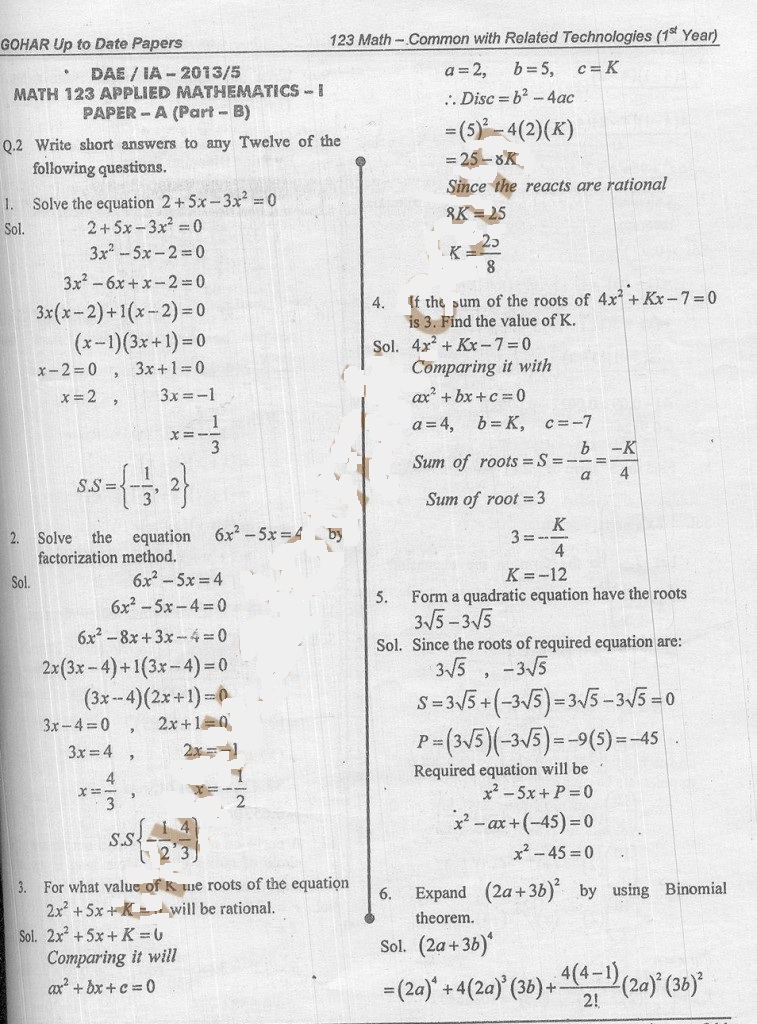 GOHAR Up to Date Papers
123 Math – .Common with Related Technologies (1st Year)
DAE / IA – 2013/5
MATH 123 APPLIED MATHEMATICS – I
PAPER – A (Part – B)
Q.2 Write short answers to any Twelve of the
following questions.
1. Solve the equation 2 + 5x – 3x² = 0
Sol. 2 + 5x – 3x² = 0
3x² – 5x – 2 = 0
3x² – 6x + x – 2 = 0
3x(x – 2) + 1(x – 2) = 0
(x – 1)(3x + 1) = 0
x – 2 = 0 , 3x + 1 = 0
x = 2 , 3x = –1
x = –1/3
S.S = {–1/3, 2}
2. Solve the equation 6x² – 5x = 4 by
factorization method.
Sol. 6x² – 5x = 4
6x² – 5x – 4 = 0
6x² – 8x + 3x – 4 = 0
2x(3x – 4) + 1(3x – 4) = 0
(3x – 4)(2x + 1) = 0
3x – 4 = 0 , 2x + 1 = 0
3x = 4 , 2x = –1
x = 4/3 , x = –1/2
S.S {–1/2, 4/3}
3. For what value of K the roots of the equation
2x² + 5x + K = will be rational.
Sol. 2x² + 5x + K = 0
Comparing it will
ax² + bx + c = 0
a = 2, b = 5, c = K
∴ Disc = b² – 4ac
= (5)² – 4(2)(K)
= 25 – 8K
Since the reacts are rational
8K = 25
K = 25/8
4. If the sum of the roots of 4x² + Kx – 7 = 0
is 3. Find the value of K.
Sol. 4x² + Kx – 7 = 0
Comparing it with
ax² + bx + c = 0
a = 4, b = K, c = –7
Sum of roots = S = –b/a = –K/4
Sum of root = 3
3 = –K/4
K = –12
5. Form a quadratic equation have the roots
3√5 – 3√5
Sol. Since the roots of required equation are:
3√5 , –3√5
S = 3√5 + (–3√5) = 3√5 – 3√5 = 0
P = (3√5)(–3√5) = –9(5) = –45 .
Required equation will be
x² – 5x + P = 0
x² – ax + (–45) = 0
x² – 45 = 0
6. Expand (2a + 3b)² by using Binomial
theorem.
Sol. (2a + 3b)⁴
= (2a)⁴ + 4(2a)³(3b) + 4(4–1)/2! (2a)²(3b)²